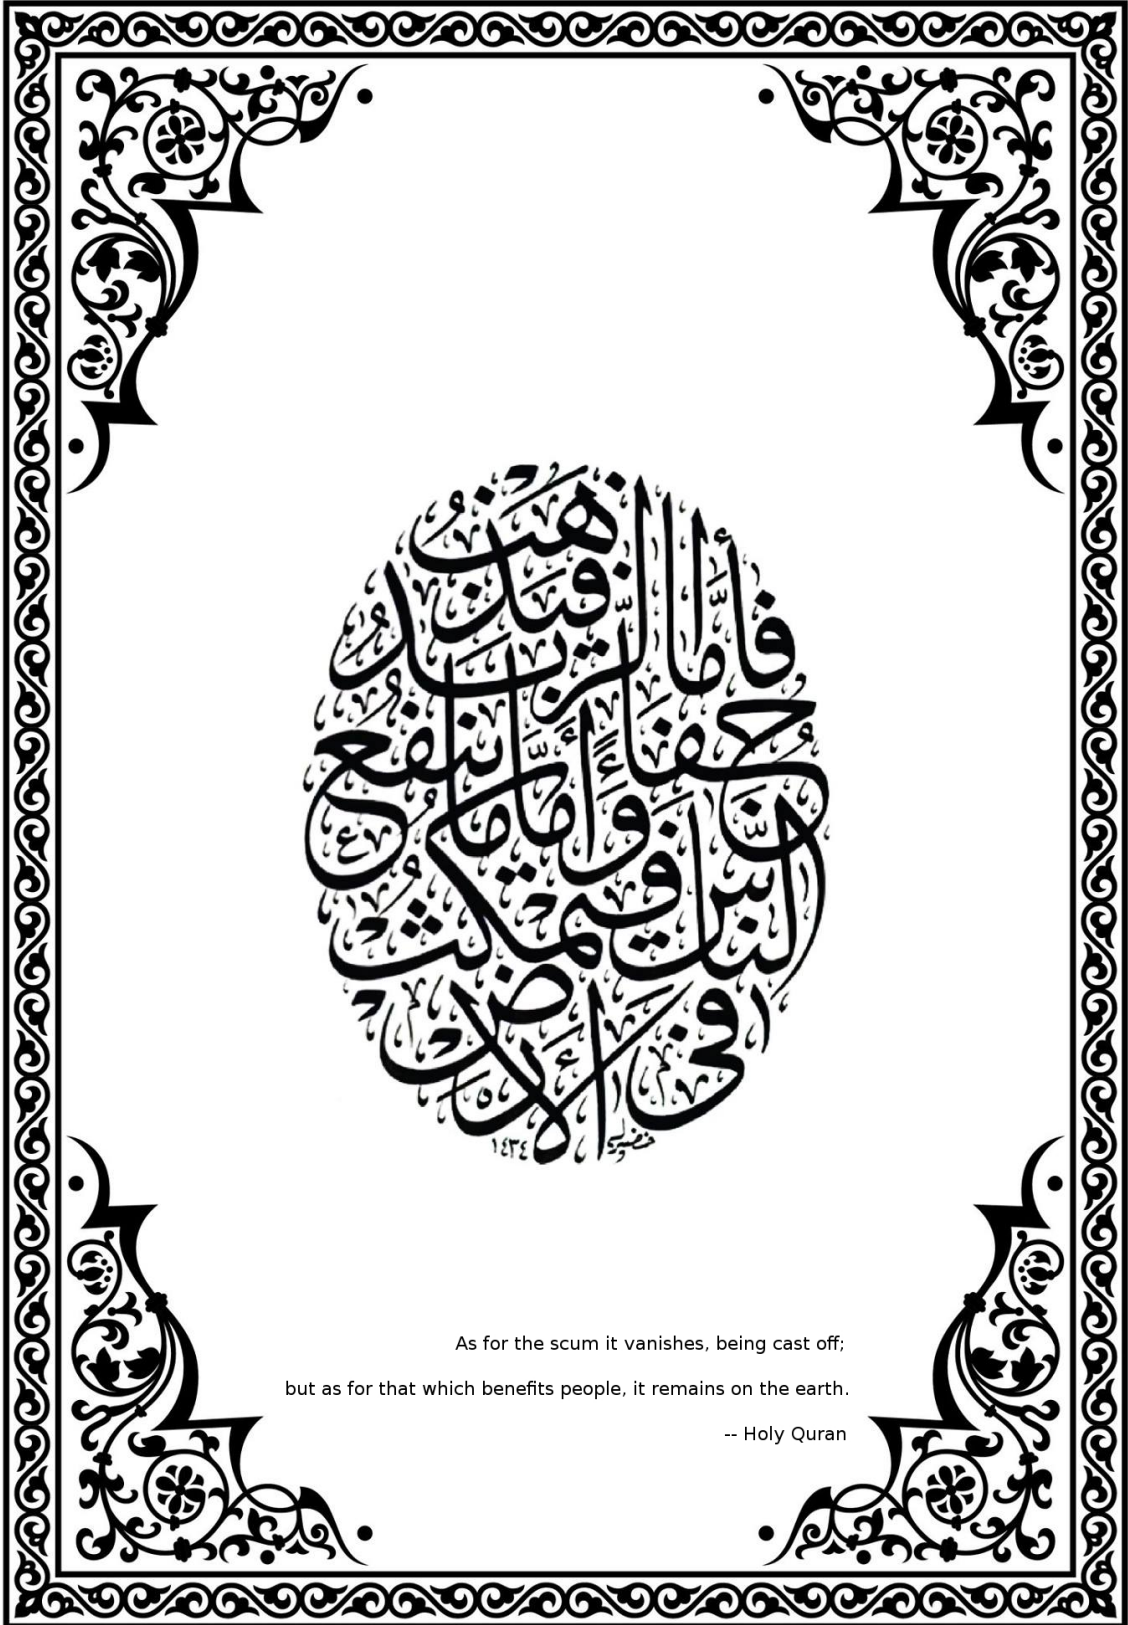 فَأَمَّا الزَّبَدُ فَيَذْهَبُ
جُفَاءً وَأَمَّا مَا يَنْفَعُ
النَّاسَ فَيَمْكُثُ
فِي الْأَرْضِ
١٤٣٤
As for the scum it vanishes, being cast off;
but as for that which benefits people, it remains on the earth.
-- Holy Quran